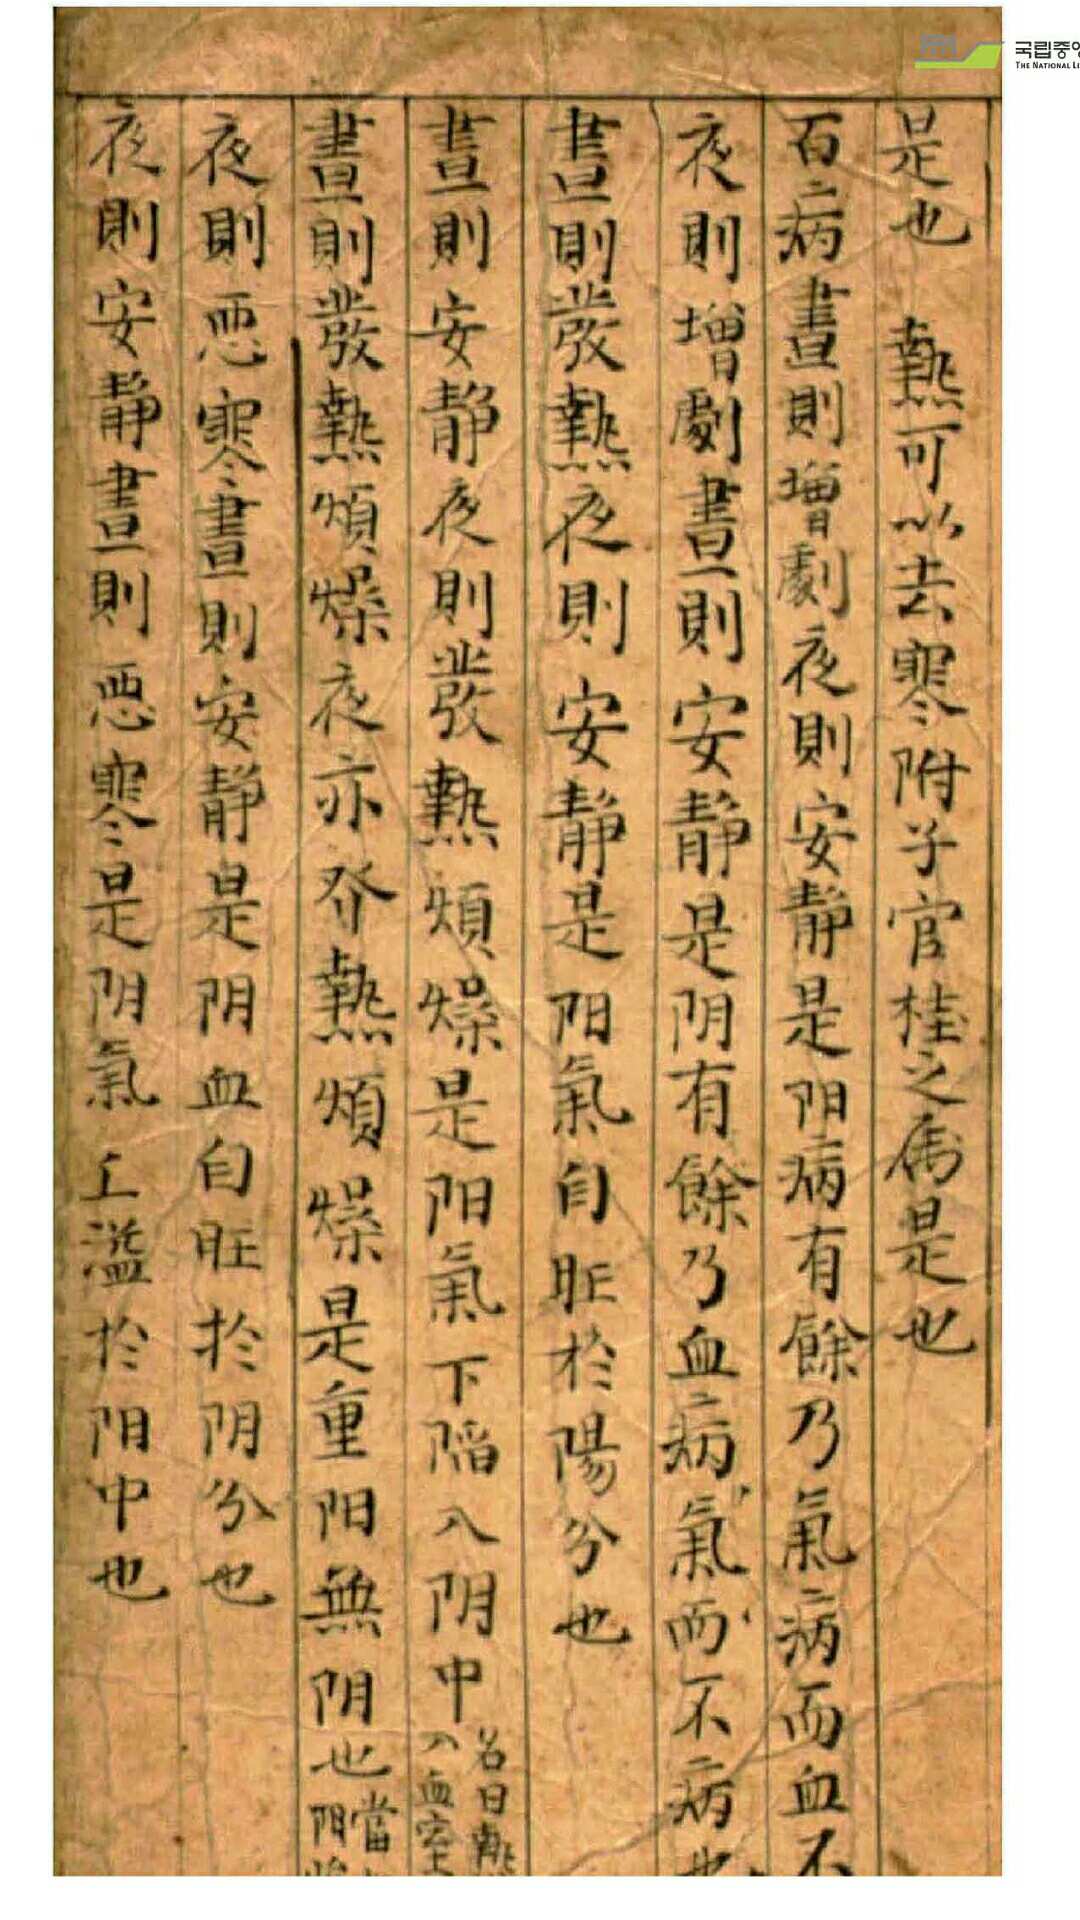 是也　熱可以去寒附子官桂之属是也
百病晝則增劇夜則安静是阳病有餘乃氣病而血不
夜則增劇晝則安静是阴有餘乃血病氣而不病也
晝則發熱夜則安静是阳氣自旺於陽分也
晝則安静夜則發熱煩燥是阳氣下陷入阴中 名曰熱 入血室
晝則發熱煩燥夜亦發熱煩燥是重阳無阴也 當
夜則恶寒晝則安静是阴血自旺於阴分也
夜則安静晝則恶寒是阴氣上溢於阳中也
국립중앙
THE NATIONAL LI